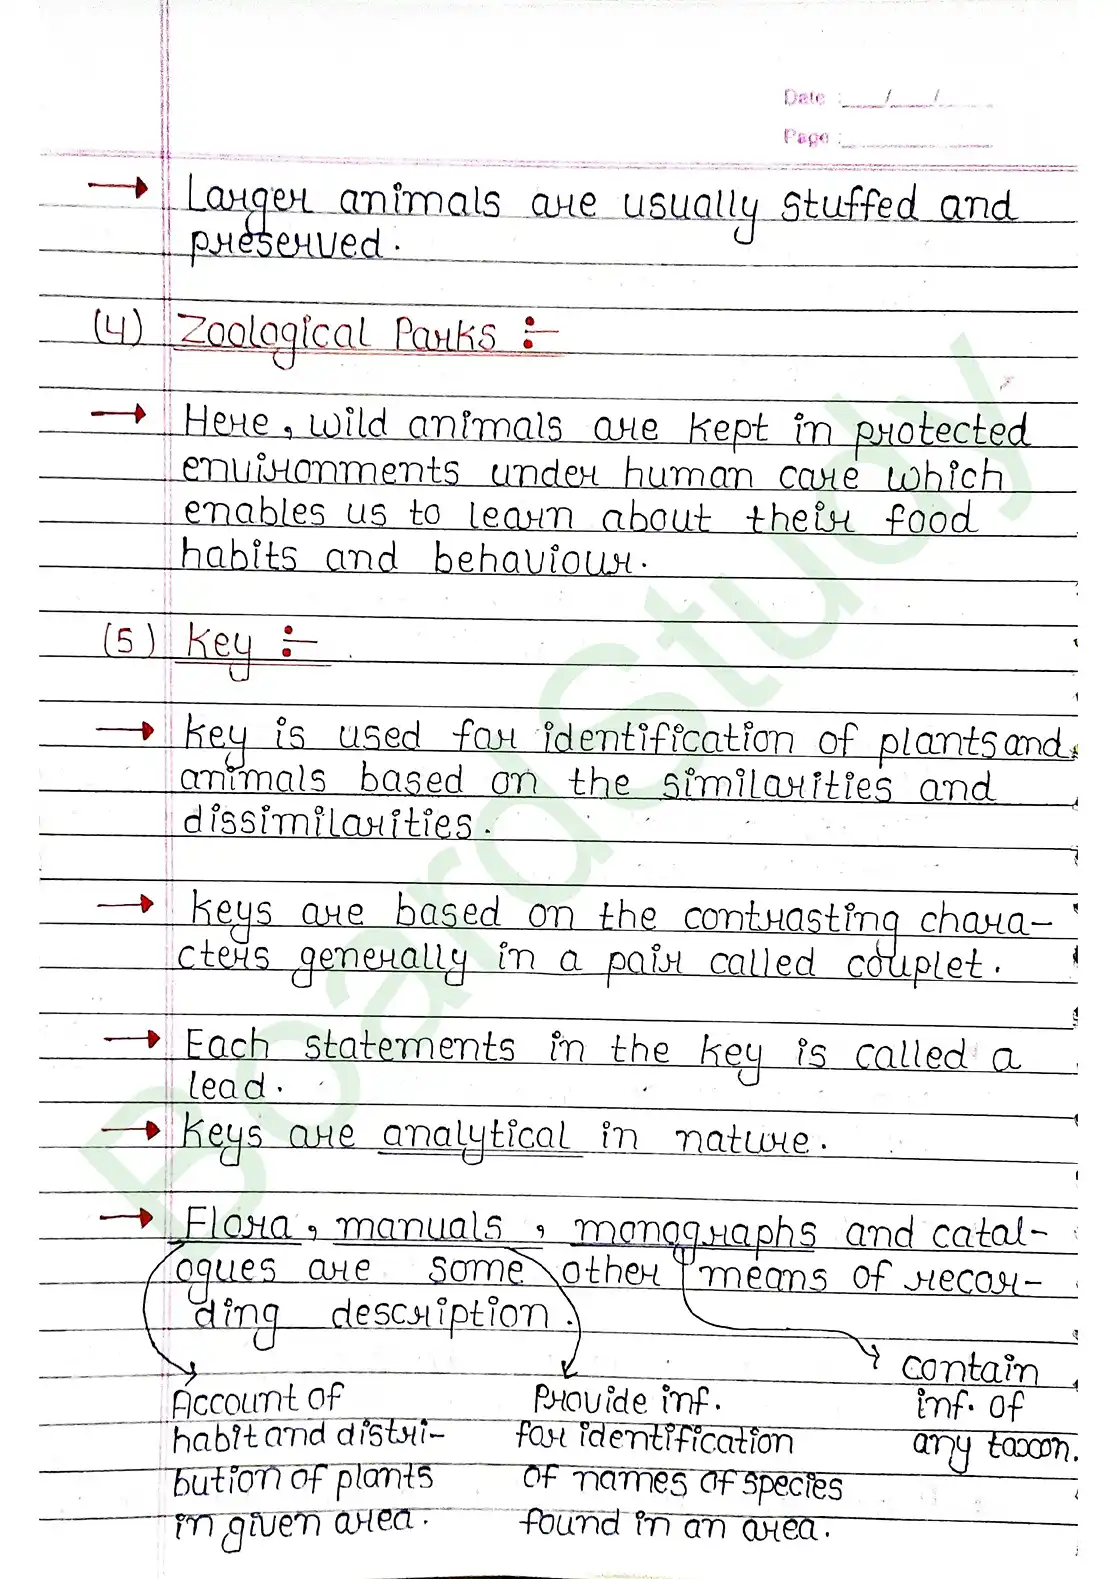 Date :____/____/____
Page :____________
→ Larger animals are usually stuffed and
preserved.
(4) Zoological Parks :-
→ Here, wild animals are kept in protected
environments under human care which
enables us to learn about their food
habits and behaviour.
(5) Key :-
→ Key is used for identification of plants and
animals based on the similarities and
dissimilarities.
→ Keys are based on the contrasting chara-
cters generally in a pair called couplet.
→ Each statements in the key is called a
lead.
→ Keys are analytical in nature.
→ Flora, manuals, monographs and catal-
ogues are some other means of recor-
ding description.
Account of
habit and distri-
bution of plants
in given area.
Provide inf.
for identification
of names of species
found in an area.
contain
inf. of
any taxon.
BoardStudy